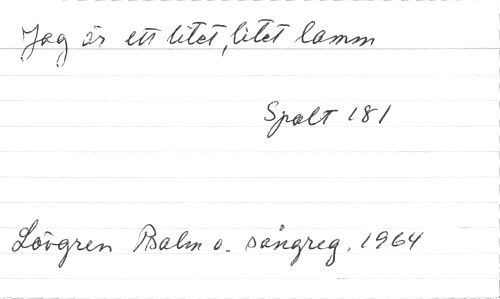 Jag är ett litet, litet lamm
Spalt 181
Lövgren Psalm o. sångreg. 1964